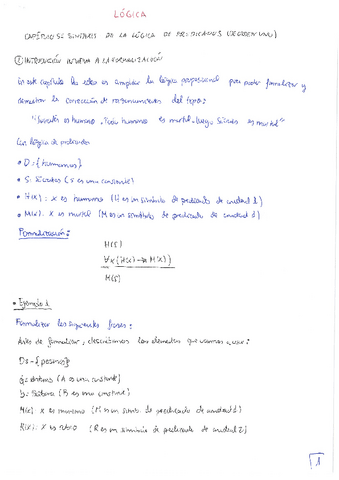 LÓGICA
CAPÍTULO 5: SINTAXIS DE LA LÓGICA DE PREDICADOS (DE ORDEN UNO)
① INTRODUCCIÓN INTUITIVA A LA FORMALIZACIÓN
En este capítulo la idea es ampliar la lógica proposicional para poder formalizar y
demostrar la corrección de razonamientos del tipo:
"Sócrates es humano, Todo humano es mortal, luego Sócrates es mortal"
Con lógica de predicados
• D: {humanos}
• S: Sócrates (S es una constante)
• H(x): x es humano (H es un símbolo de predicado de aridad 1)
• M(x): x es mortal (M es un símbolo de predicado de aridad 1)
Formalización:
H(S)
∀x (H(x) → M(x))
M(S)
• Ejemplo 1
Formalizar las siguientes frases:
Antes de formalizar, describimos los elementos que vamos a usar:
D = {personas}
(A es una constante)
(B es una constante)
M(x): x es (M es un símb. de predicado de aridad 1)
R(x): x es rubio (R es un símbolo de predicado de aridad
1